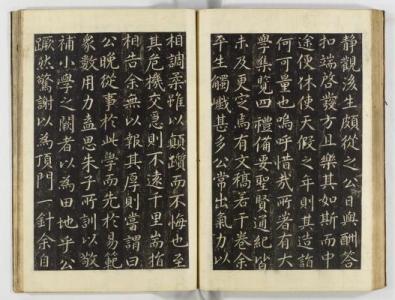 静觀後生頗從之公日與酬答
扣端啓發方且樂其如斯而中
途便休使天假之年則其造詣
何可量也嗚呼惜哉所著有大
學集覽四禮備要聖賢通紀皆
未及更定焉有文稿若干卷余
平生觸戱甚多公常出氣力以
相調柔雖以顚躓而不悔也至
其危機交急則不遠千里耑指
相告余無以報其厚則嘗謂曰
公晩從事於此學而先於易範
象數用力盍思朱子所訓以敬
補小學之闕者以為田地乎公
蹶然驚謝以為頂門一針余自